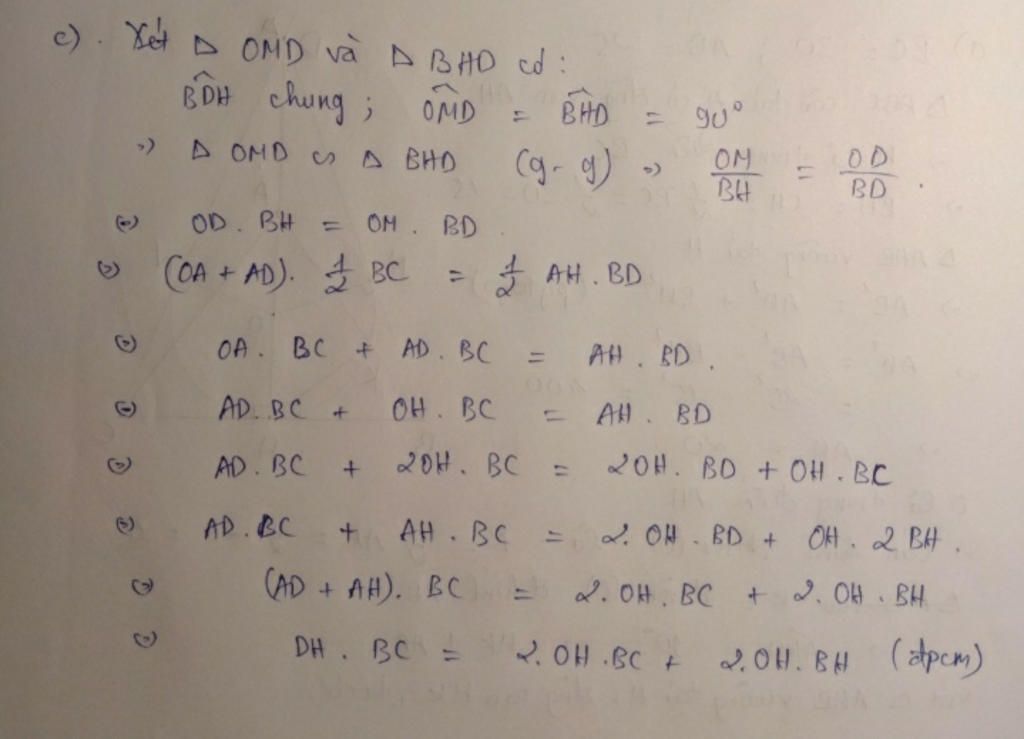 c). Xét Δ OMD và Δ BHD có:
BDH chung; OMD = BHD = 90°
=> Δ OMD ∽ Δ BHD (g-g) => OM/BH = OD/BD.
<=> OD. BH = OM. BD
<=> (OA + AD). 1/2 BC = 1/2 AH. BD
<=> OA. BC + AD. BC = AH. BD.
<=> AD. BC + OH. BC = AH. BD
<=> AD. BC + 2OH. BC = 2OH. BD + OH. BC
<=> AD. BC + AH. BC = 2. OH. BD + OH. 2 BH.
<=> (AD + AH). BC = 2. OH. BC + 2. OH. BH
<=> DH. BC = 2. OH. BC + 2. OH. BH (đpcm)